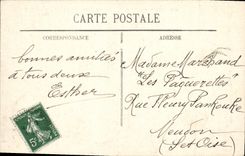 CARTE POSTALE
CORRESPONDANCE
ADRESSE
bonnes amitiés
à tous deux
Esther
Madame Marchand
"Les Paquerettes"
Rue Fleury Pankouke
Meudon
(S et Oise)
5c